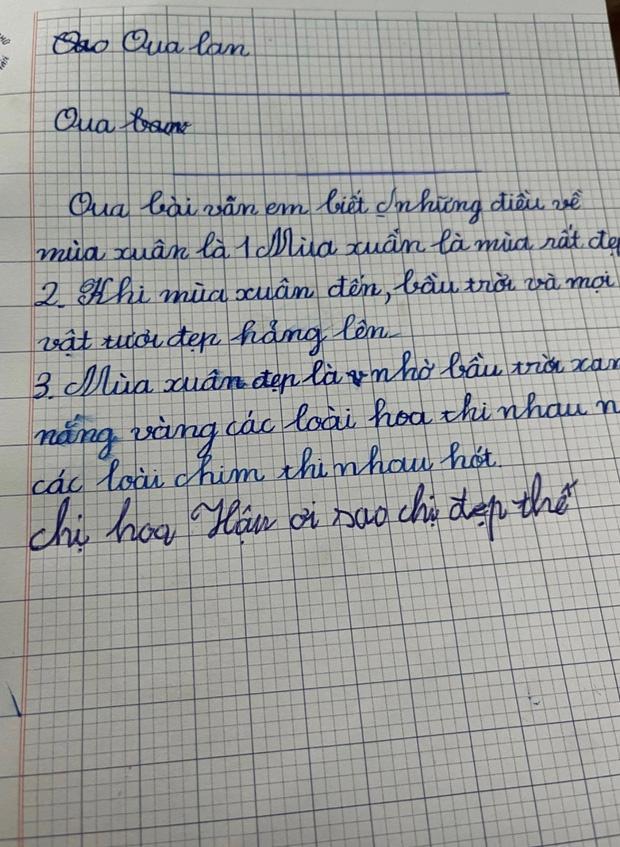 Qua lan
Qua
Qua bài văn em biết những điều về
mùa xuân là 1 Mùa xuân là mùa rất đẹ
2. Khi mùa xuân đến, bầu trời và mọi
vật tươi đẹp hẳng lên
3. Mùa xuân đẹp là nhờ bầu trời xan
nắng vàng các loài hoa thi nhau n
các loài chim thi nhau hót.
chị hoa Hậu ơi sao chị đẹp thế